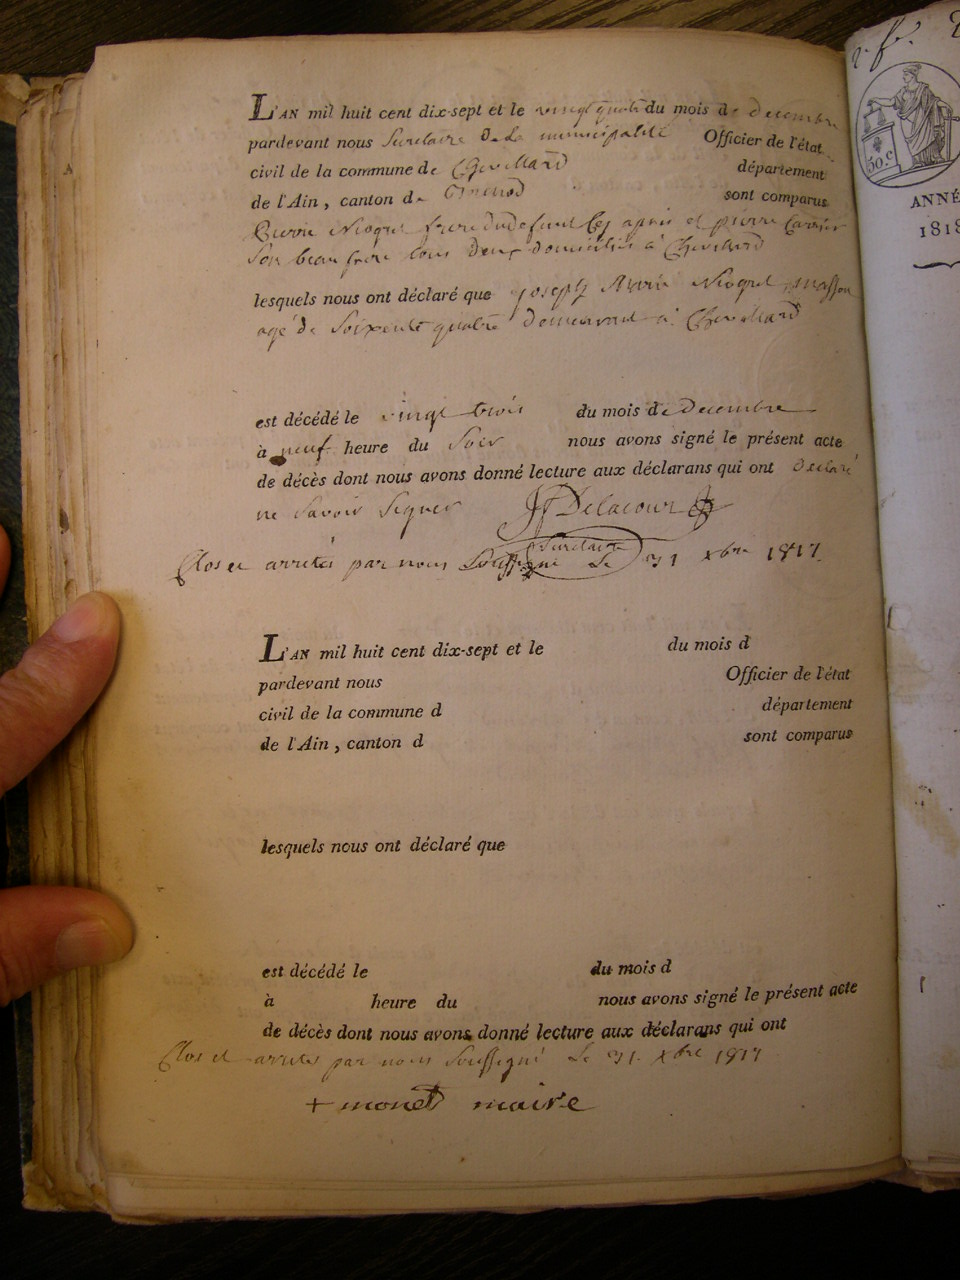 L'AN mil huit cent dix-sept et le vingt quatre du mois de decembre
pardevant nous Sécrétaire De La municipalité Officier de l'état
civil de la commune de Chevillard département
de l'Ain, canton de sont comparus
Pierre Nioqret frere du defunt et pierre Carrier
Son beau frere tous Deux domiciliés à Chevillard
lesquels nous ont déclaré que joseph Marie Nioqret
agé de Soixente quatre demeurant a Chevillard
est décédé le vingt trois du mois de decembre
à neuf heure du Soir nous avons signé le présent acte
de décès dont nous avons donné lecture aux déclarans qui ont declaré
ne Savoir Signer Delacour
Clos et arrettés par nous Soussigné Le 31 xbre 1817
L'AN mil huit cent dix-sept et le du mois d
pardevant nous Officier de l'état
civil de la commune d département
de l'Ain, canton d sont comparus
lesquels nous ont déclaré que
est décédé le du mois d
à heure du nous avons signé le présent acte
de décès dont nous avons donné lecture aux déclarans qui ont
Clos et arrettés par nous Soussigné Le 31 xbre 1817
+ monet maire
50.c
ANNÉ
1818